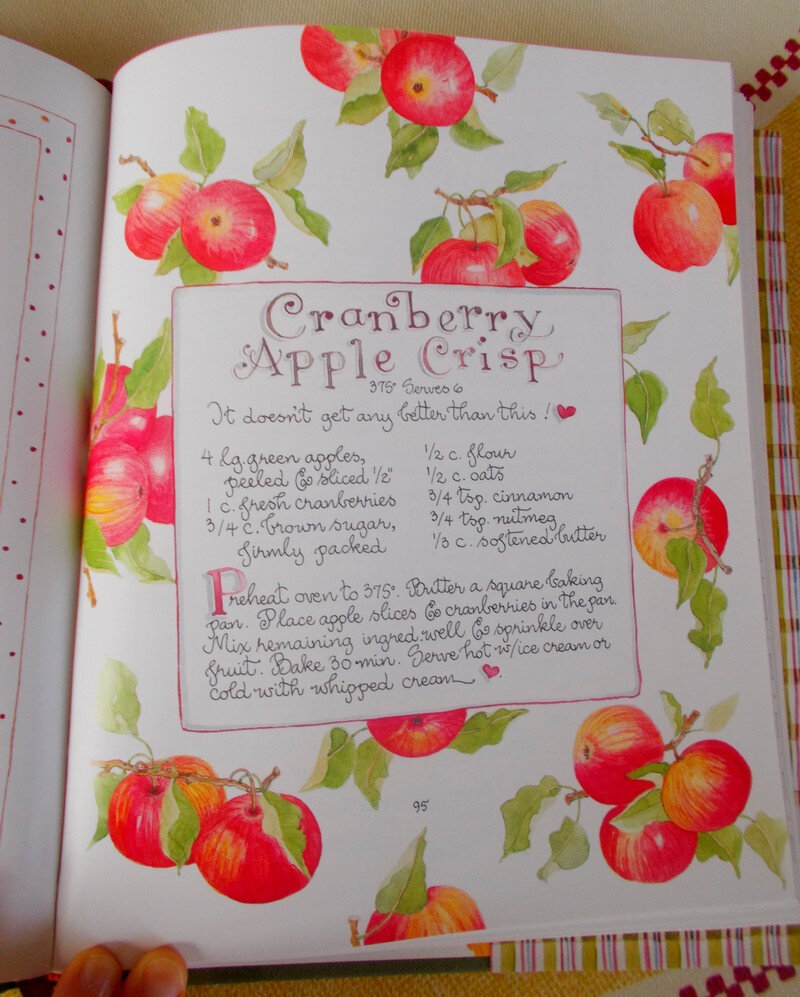 Cranberry
Apple Crisp
375° Serves 6
It doesn't get any better than this! ♥
4 lg. green apples,
peeled & sliced 1/2"
1 c. fresh cranberries
3/4 c. brown sugar,
firmly packed
1/2 c. flour
1/2 c. oats
3/4 tsp. cinnamon
3/4 tsp. nutmeg
1/3 c. softened butter
Preheat oven to 375°. Butter a square baking
pan. Place apple slices & cranberries in the pan.
Mix remaining ingred. well & sprinkle over
fruit. Bake 30 min. Serve hot w/ice cream or
cold with whipped cream ♥.
95